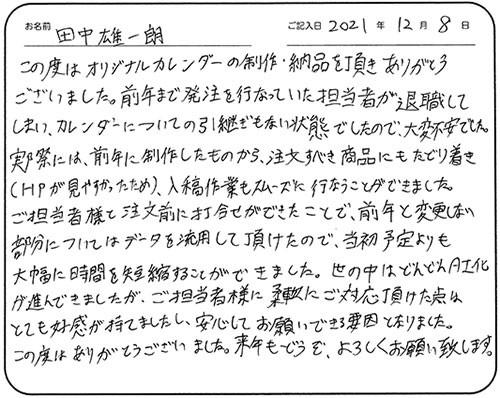 お名前 田中雄一朗 ご記入日 2021 年 12 月 8 日
この度はオリジナルカレンダーの制作・納品を頂きありがとう
ございました。前年まで発注を行なっていた担当者が退職して
しまい、カレンダーについての引継ぎもない状態でしたので、大変不安でした。
実際には、前年に制作したものから、注文すべき商品にもたどり着き
(HPが見やすかったため)、入稿作業もスムーズに行なうことができました。
ご担当者様と注文前に打合せができたことで、前年と変更しない
部分についてはデータを流用して頂けたので、当初予定よりも
大幅に時間を短縮することができました。世の中はどんどんAI化
が進んできましたが、ご担当者様に柔軟にご対応頂けた点は
とても好感が持てましたし、安心してお願いできる要因となりました。
この度はありがとうございました。来年もどうぞ、よろしくお願い致します。